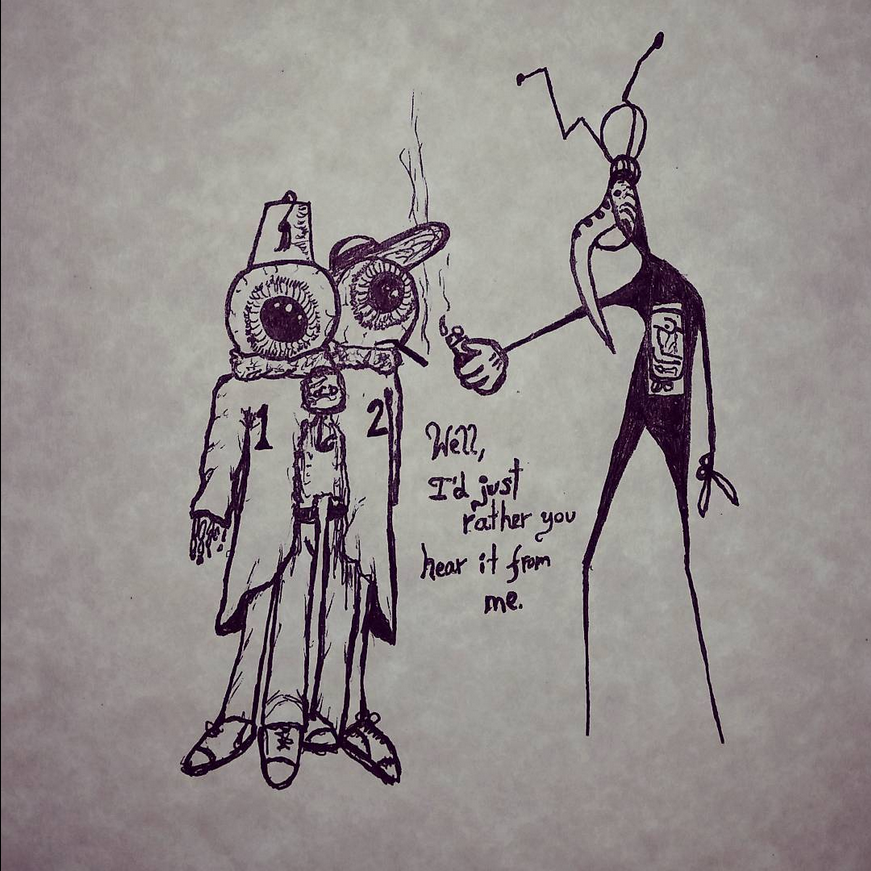 1
2
Well,
I'd just
rather you
hear it from
me.